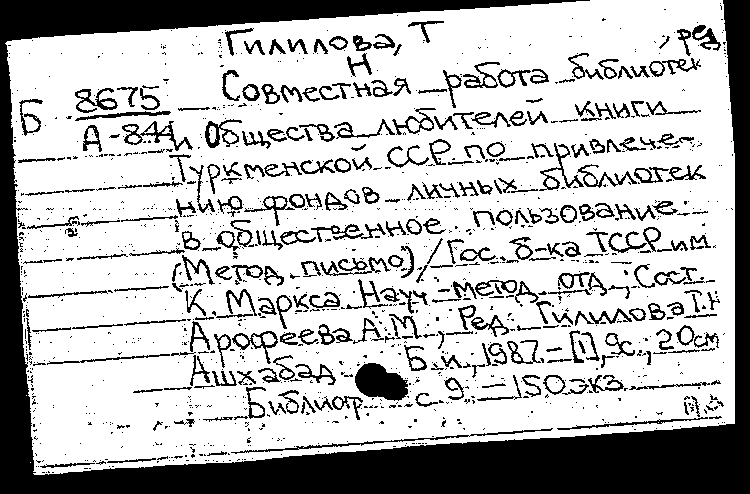 Гилилова, Т. Н., ред.
Б 8675
А-844
Совместная работа библиотек
и Общества любителей книги
Туркменской ССР по привлече-
нию фондов личных библиотек
в общественное пользование:
(Метод. письмо) / Гос. б-ка ТССР им.
К. Маркса. Науч.-метод. отд.; Сост.
Арофеева А.М.; Ред. Гилилова Т.Н
Ашхабад: Б.и., 1987.-[1], 9с.; 20см
Библиогр. с 9. - 150 экз